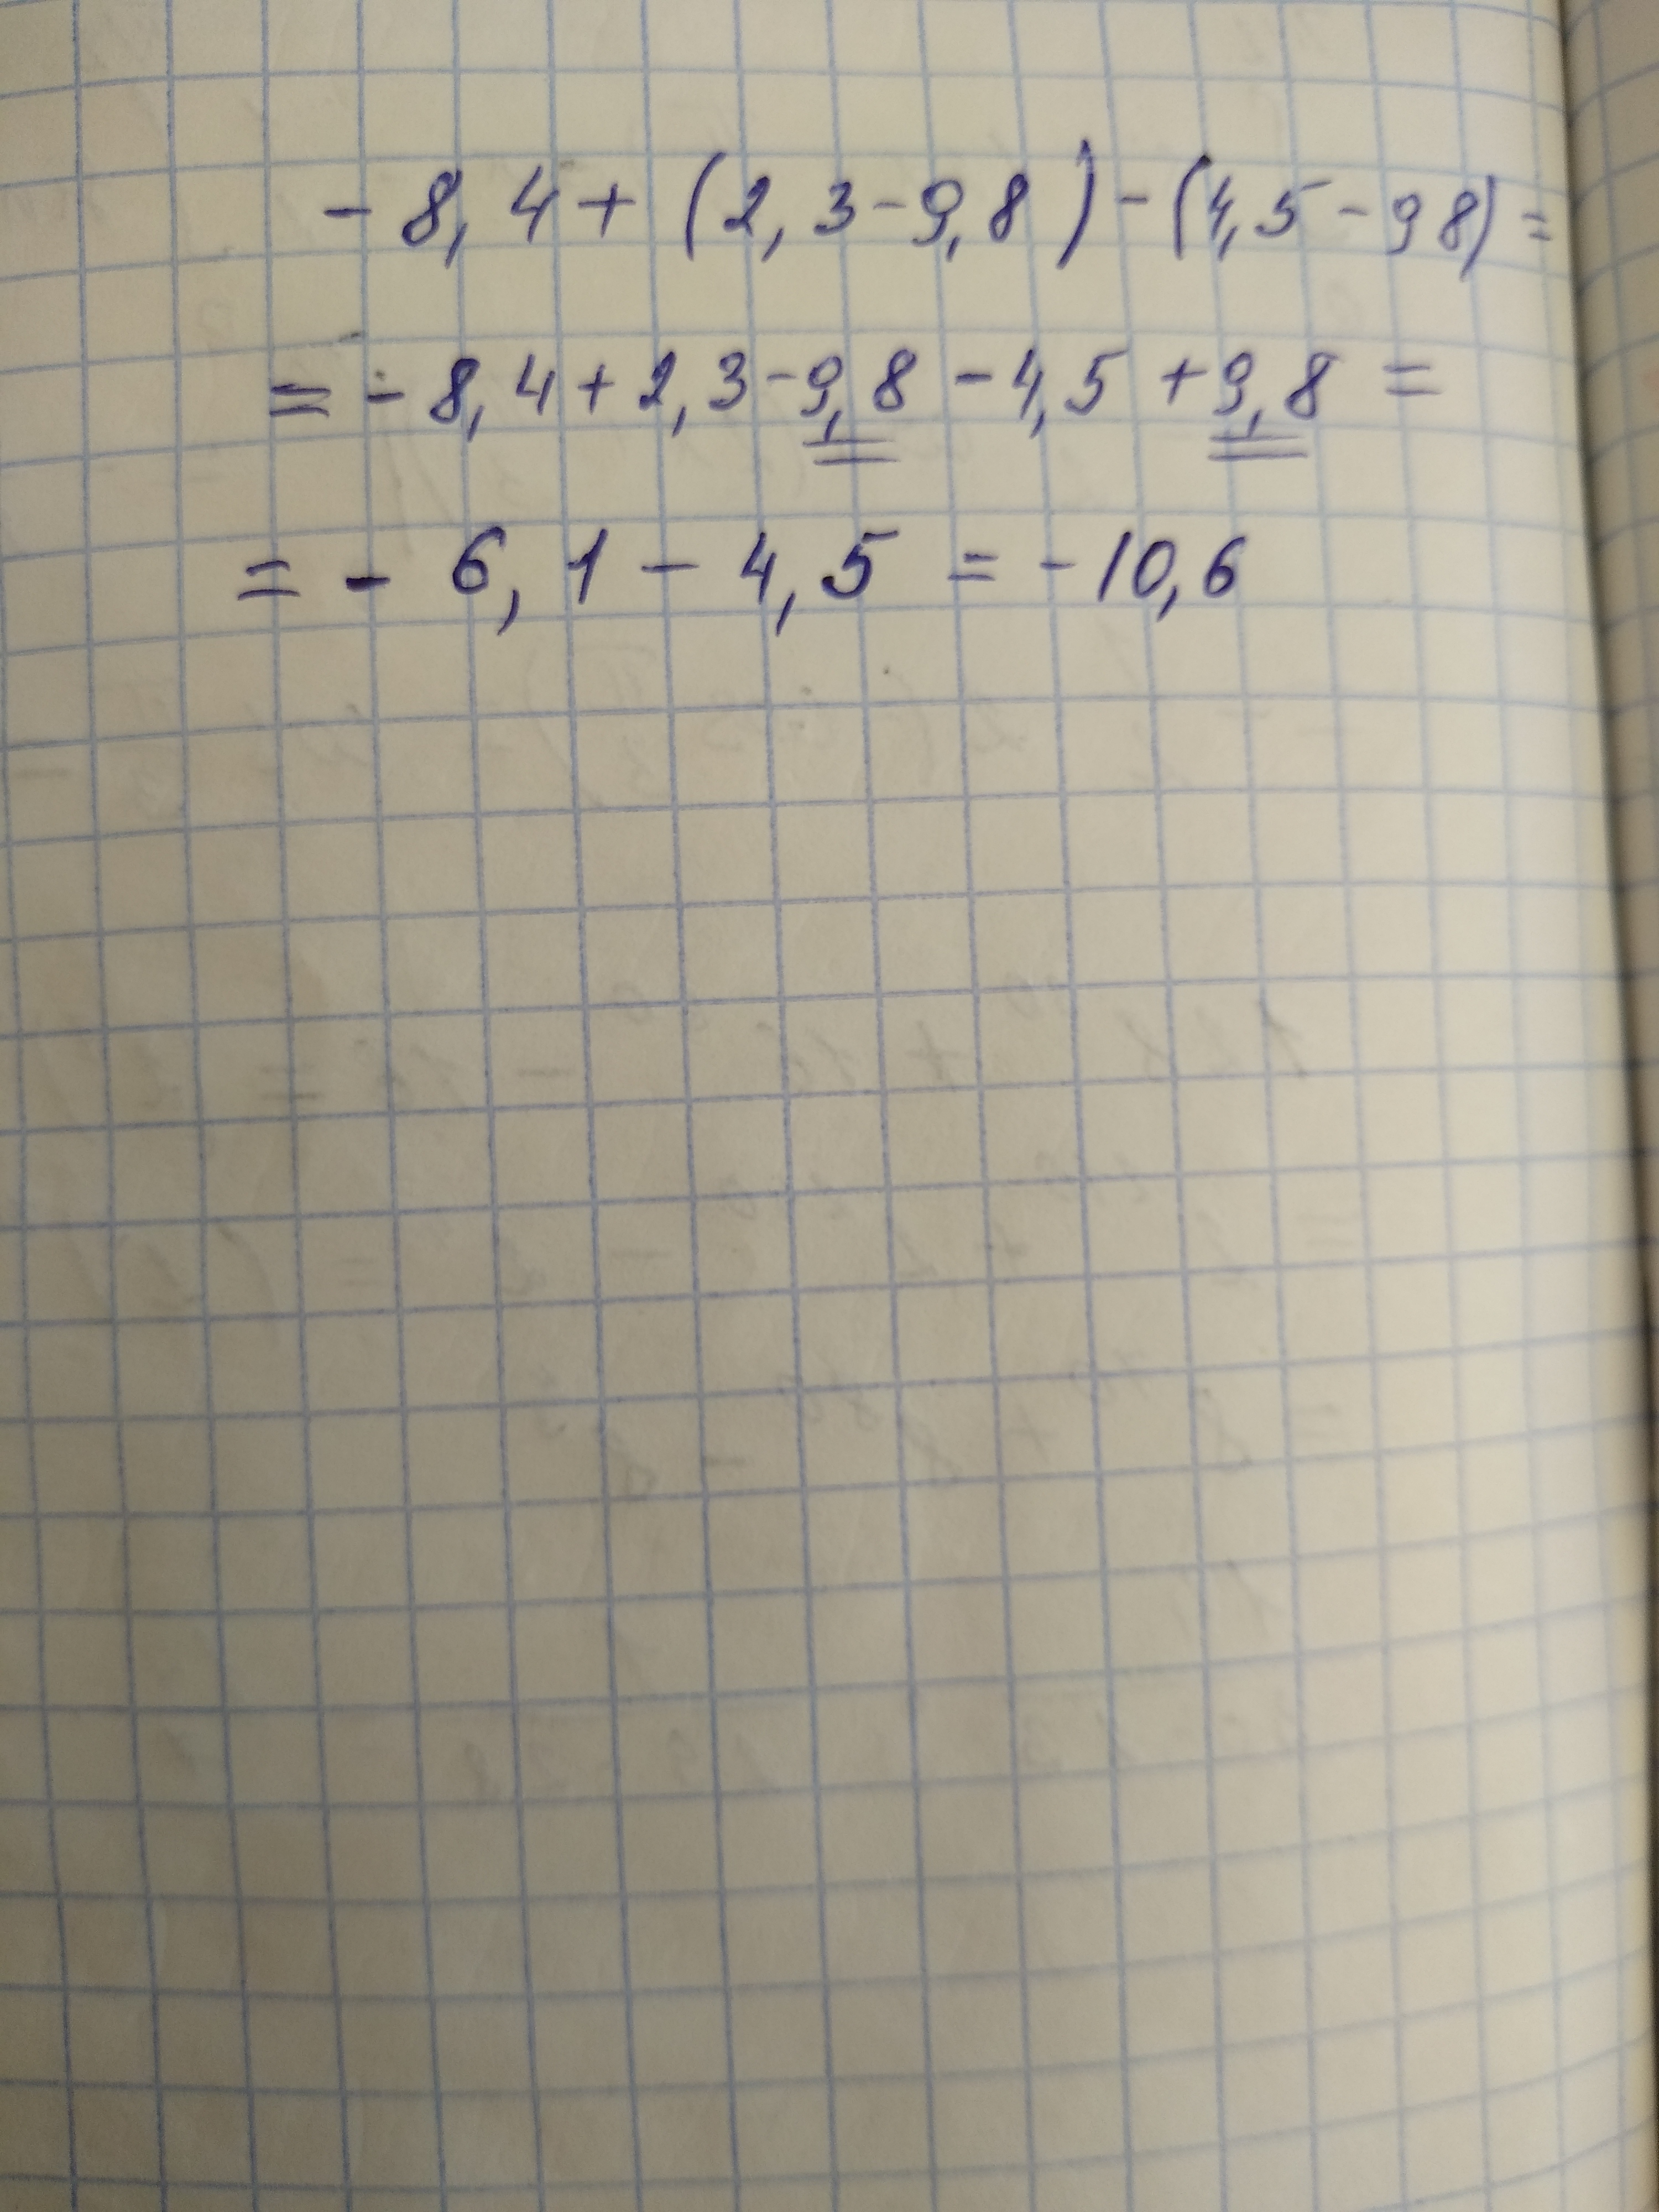 - 8,4 + (2,3 - 9,8) - (4,5 - 9 8) =
= - 8,4 + 2,3 - 9,8 - 4,5 + 9,8 =
= - 6,1 - 4,5 = - 10,6